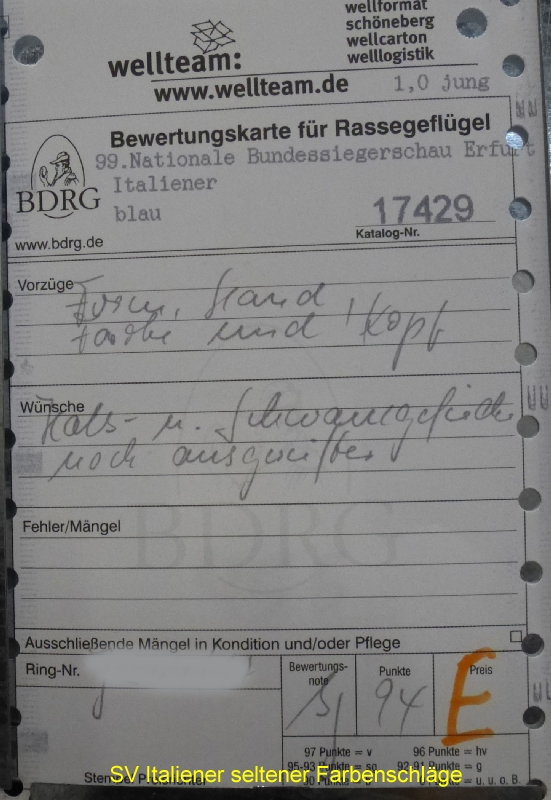 wellformat
schöneberg
wellcarton
welllogistik
wellteam:
www.wellteam.de
1,0 jung
Bewertungskarte für Rassegeflügel
99.Nationale Bundessiegerschau Erfurt
Italiener
BDRG
blau
17429
Katalog-Nr.
www.bdrg.de
Vorzüge
Form, Stand
Farbe und Kopf
Wünsche
Hals- u. Schwanzgefieder
noch ausgereifter
Fehler/Mängel
BDRG
Ausschließende Mängel in Kondition und/oder Pflege
Ring-Nr.
Bewertungs-
note
Punkte
Preis
sg
94
E
97 Punkte = v
96 Punkte = hv
95-93 Punkte = sg
92-91 Punkte = g
90 Punkte
Punkte = u. u. o. B.
SV Italiener seltener Farbenschläge